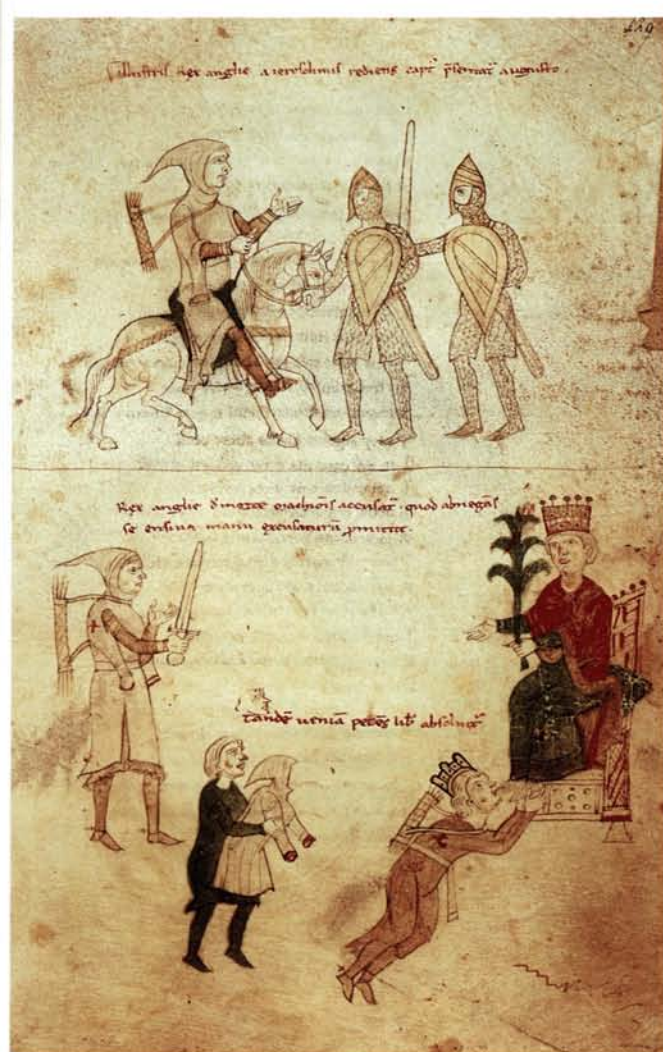 illustris Rex anglie a ierosolimis rediens capt' p̄sentat' augusto.
Rex anglie d' morte accusat'. quod abnegās
se ensiua manu excusaturū
Tandē ueniā petēs lib' absoluit'